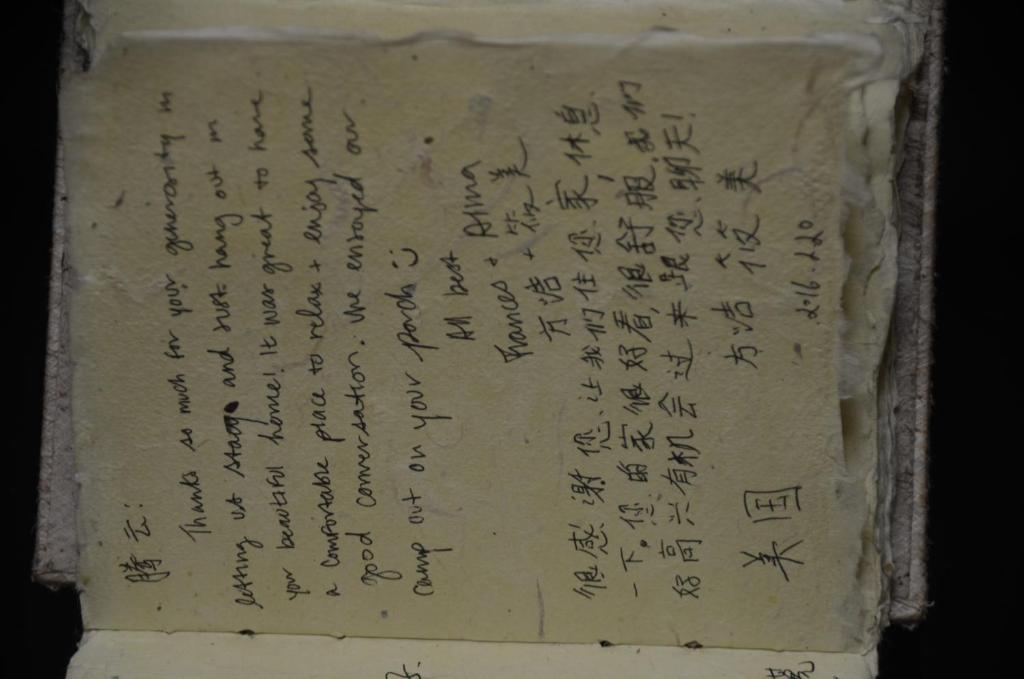 腾云:
Thanks so much for your generosity in
letting us stay and just hang out in
your beautiful home! It was great to have
a comfortable place to relax + enjoy some
good conversation. We enjoyed our
camp out on your porch :)
All best
Frances + Anna
方洁 + 筱美
很感谢您让我们住您家休息
一下。您的家很好看,很舒服,我们
好高兴有机会过来跟您聊天!
方洁 筱美
美国 2016.2.20